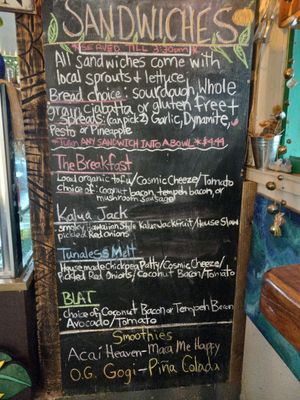 SANDWICHES
*SERVED TILL 3:30pm*
All sandwiches come with
local sprouts & lettuce
Bread choice: sourdough, whole
grain, ciabatta or gluten free +
*Spreads: (can pick 2) Garlic, Dynamite,
Pesto or Pineapple
*Turn ANY SANDWICH INTO A BOWL *$4.44
The Breakfast
Local organic tofu/Cosmic Cheeze/Tomato
choice of: Coconut bacon, tempeh bacon, or
mushroom sausage
Kalua Jack
smoky, Hawaiian Style Kalua Jackfruit/House Slaw
pickled Red Onions
Tunaless Melt
Housemade chickpea Patty/Cosmic Cheeze/
Pickled Red Onions/Coconut Bacon/Tomato
BLAT
choice of Coconut Bacon or Tempeh Bacon
Avocado/Tomato
Smoothies
Acai Heaven-Maca Me Happy
O.G. Gogi-Piña Colada